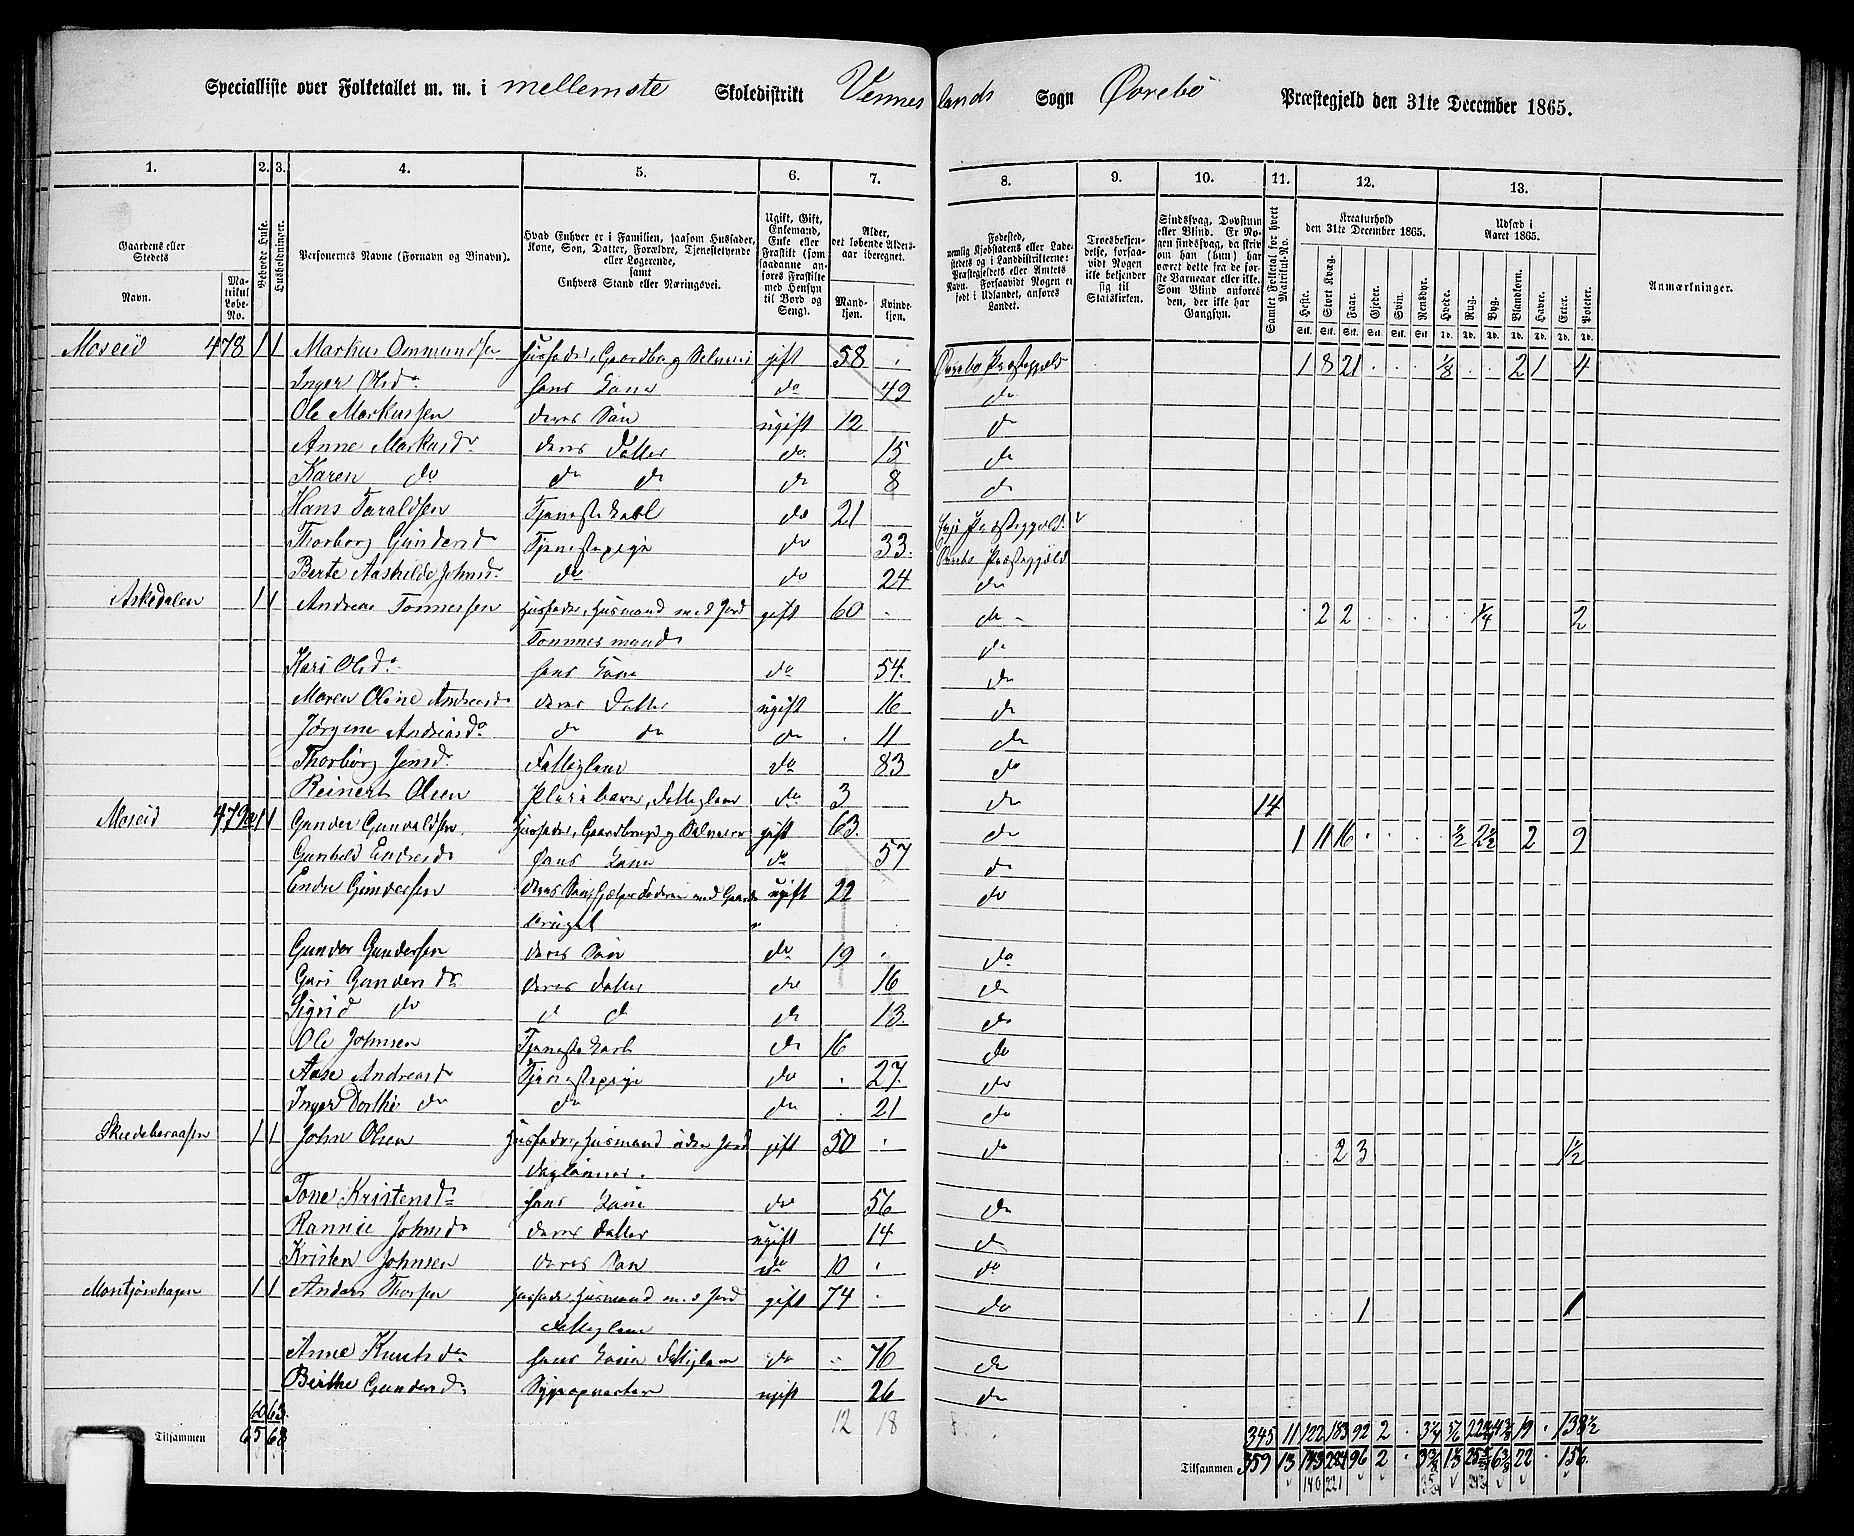 Specialliste over Folketallet m. m. i mellemste Skoledistrikt Vennes lands Sogn Øvrebø Præstegjeld den 31te December 1865.
1. 2. 3. 4. 5. 6. 7. 8. 9. 10. 11. 12. 13.
Gaardens eller Stedets Navn. Matrikul Løbe-No. Beboede Huse. Husholdninger. Personernes Navne (Fornavn og Binavn). Hvad Enhver er i Familien, saasom Husfader, Kone, Søn, Datter, Forældre, Tjenestetyende eller Logerende, samt Enhvers Stand eller Næringsvei. Ugift, Gift, Enkemand, Enke eller Fraskilt (som saadanne anføres Fraskilte med Hensyn til Bord og Seng). Alder, det løbende Aldersaar iberegnet. Mandkjøn. Kvindekjøn.
Fødested, nemlig Kjøbstadens eller Ladestedets og i Landdistrikterne: Præstegjeldets eller Amtets Navn. Forsaavidt Nogen er født i Udlandet, anføres Landet. Troesbekjendelse, forsaavidt Nogen ikke bekjender sig til Statskirken. Sindssvag, Døvstum eller Blind. Er Nogen sindssvag, da skriv om han (hun) har været dette fra de første Barneaar eller ikke. Som Blind anføres den, der ikke har Gangsyn. Samlet Folketal for hvert Matrikul-No. Kreaturhold den 31te December 1865. Udsæd i Aaret 1865. Anmærkninger.
Heste. Stort Kvæg. Faar. Gjeder. Svin. Rensdyr. Hvede. Rug. Byg. Blandkorn. Havre. Erter. Poteter.
Moseid 478 1 1 Markus Ommundsen Husfader, Gaardbr og Selveier gift 58 Øvrebø Præstegjeld 1 8 21 1/8 2 1 4
Inger Olsd hans Kone do 49 do
Ole Markussen deres Søn ugift 12 do
Anne Markusd deres Datter do 15 do
Karen do do do do 8 do
Hans Taraldsen Tjenestekarl do 21 Præstegjeld
Thorborg Gundersd Tjenestepige do 33 Øvrebø Præstegjeld
Berte Aashilde Johnsd do do 24 do
Askedalen 1 1 Andreas Tønnessen Husfader, Husmand med Jord gift 60 do 2 2 1/4 2
do
Kari Olsd hans Kone do 54 do
Maren Oline Andreasd deres Datter ugift 16 do
Jørgine Andreasd do do do 11 do
Thorborg Jensd Fattiglem do 83 do
Reinert Olsen Pleiebarn, Fattiglem do 3 do 14
Moseid 479a 1 1 Gunder Gunvaldsen Husfader, Gaardbruger og Selveier gift 63 do 1 11 16 1/2 2 1/2 2 9
Gunhild Endresd Hans Kone do 57 do
Endre Gundersen deres Søn, hjelper Faderen med Gaards ugift 22 do
bruget
Gunder Gundersen deres Søn do 19 do
Guri Gundersd deres Datter do 16 do
Sigrid do do do do 13 do
Ole Johnsen Tjenestekarl do 16 do
Aase Andreasd Tjenestepige do 27 do
Inger Dorthe do do do 21 do
1 1 John Olsen Husfader, Husmand uden Jord gift 50 do 2 3 1 1/2
Daglønner.
Tone Kristensd hans Kone do 56 do
Rannie Johnsd deres Datter ugift 14 do
Kristen Johnsen deres Søn do 10 do
1 1 Anders Thorsen Husfader, Husmand med Jord gift 74 do 1 1
Fattiglem
Anne Knutsd hans Kone Fattiglem do 76 do
Birthe Gundersd ugift 26 do
60 63 12 18 345 11 122 183 92 2
Tilsammen 65 68 Tilsammen 359 13 96 2 22 156
140 221